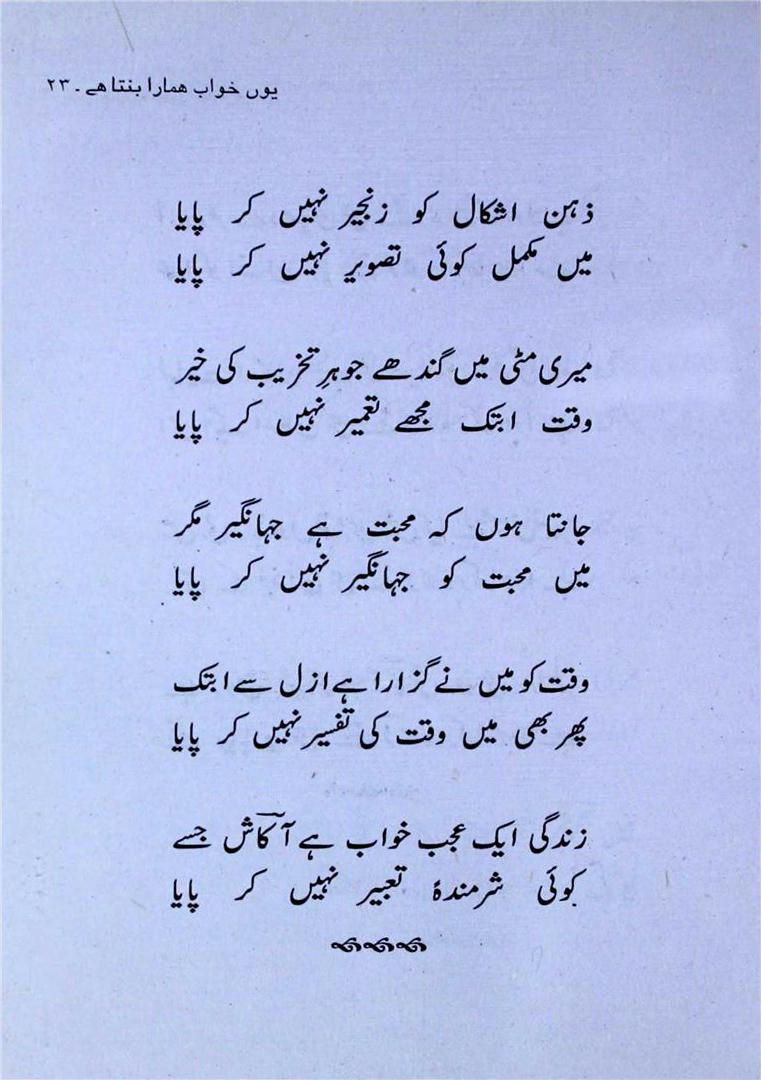 یوں خواب ہمارا بنتا ہے ۔ ۲۳
ذہن اشکال کو زنجیر نہیں کر پایا
میں مکمل کوئی تصویر نہیں کر پایا
میری مٹی میں گندھے جوہرِ تخریب کی خیر
وقت ابتک مجھے تعمیر نہیں کر پایا
جانتا ہوں کہ محبت ہے جہانگیر مگر
میں محبت کو جہانگیر نہیں کر پایا
وقت کو میں نے گزارا ہے ازل سے ابتک
پھر بھی میں وقت کی تفسیر نہیں کر پایا
زندگی ایک عجب خواب ہے آکاش جسے
کوئی شرمندۂ تعبیر نہیں کر پایا